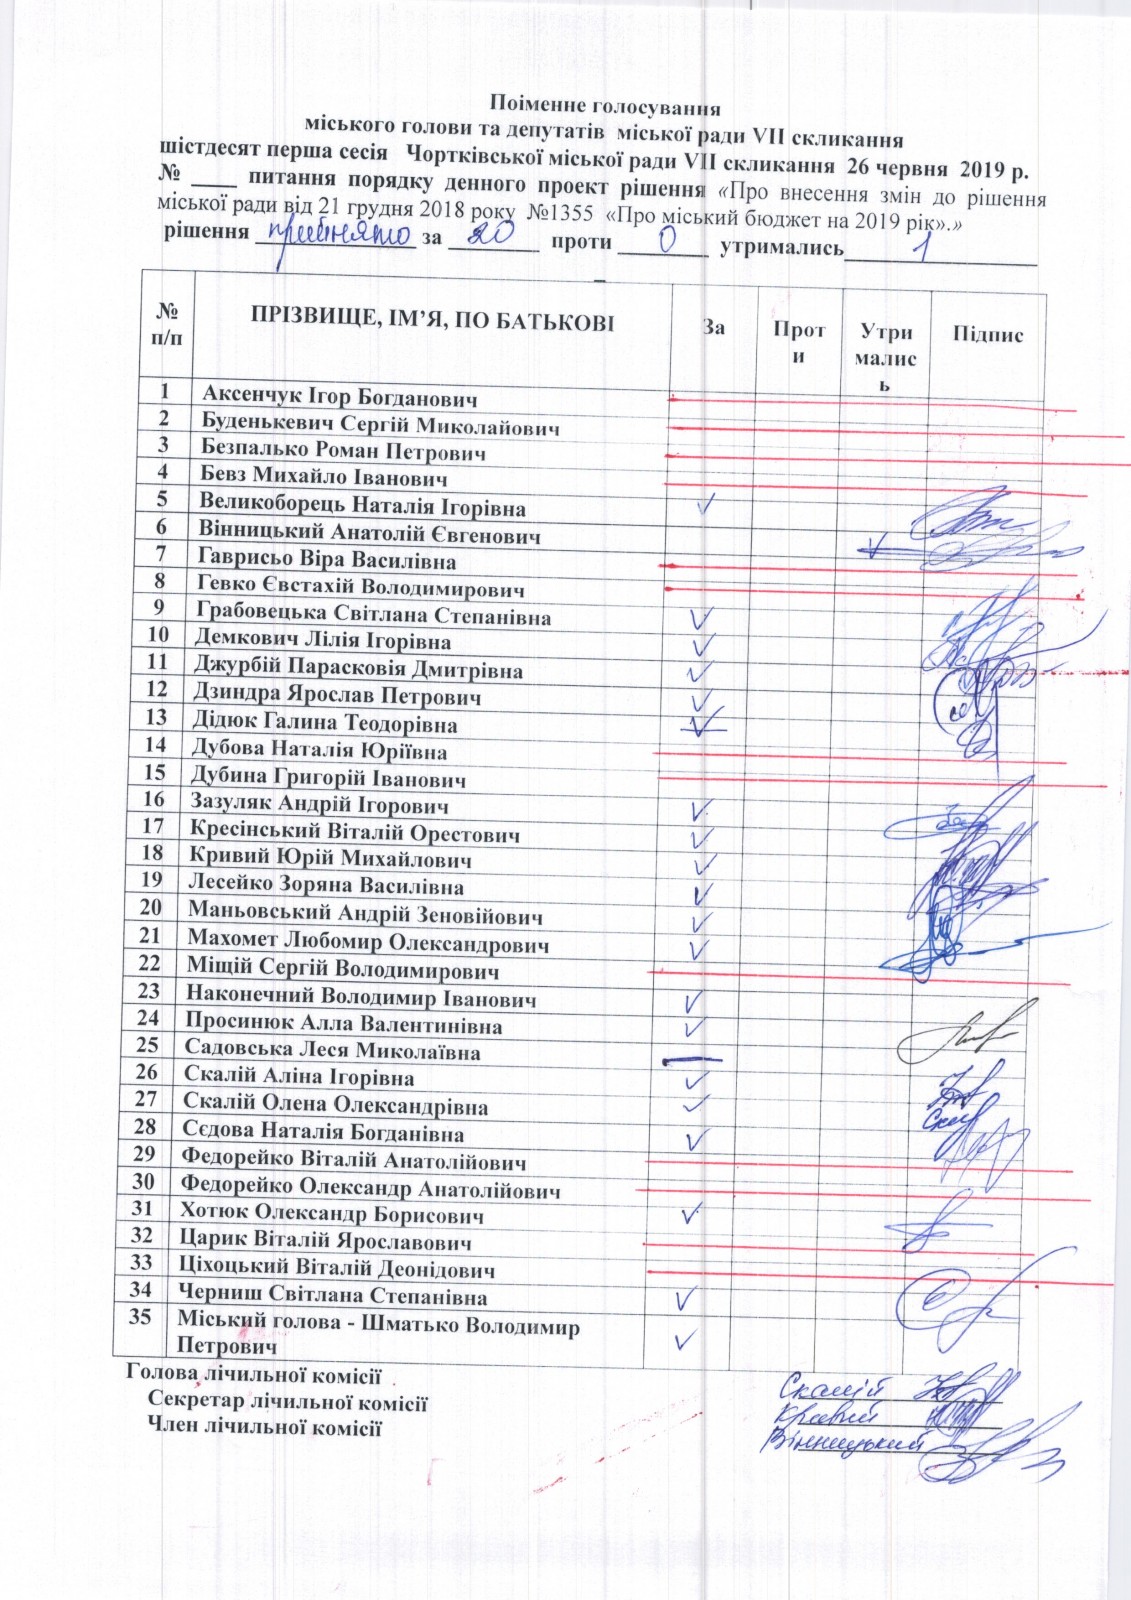 Поіменне голосування
міського голови та депутатів міської ради VII скликання
шістдесят перша сесія Чортківської міської ради VII скликання 26 червня 2019 р.
№ ____ питання порядку денного проект рішення «Про внесення змін до рішення
міської ради від 21 грудня 2018 року №1355 «Про міський бюджет на 2019 рік».»
рішення прийнято за 20 проти 0 утримались 1
№ п/п ПРІЗВИЩЕ, ІМ’Я, ПО БАТЬКОВІ За Проти Утримались Підпис
1 Аксенчук Ігор Богданович
2 Буденькевич Сергій Миколайович
3 Безпалько Роман Петрович
4 Бевз Михайло Іванович
5 Великоборець Наталія Ігорівна
6 Вінницький Анатолій Євгенович
7 Гаврисьо Віра Василівна
8 Гевко Євстахій Володимирович
9 Грабовецька Світлана Степанівна
10 Демкович Лілія Ігорівна
11 Джурбій Парасковія Дмитрівна
12 Дзиндра Ярослав Петрович
13 Дідюк Галина Теодорівна
14 Дубова Наталія Юріївна
15 Дубина Григорій Іванович
16 Зазуляк Андрій Ігорович
17 Кресінський Віталій Орестович
18 Кривий Юрій Михайлович
19 Лесейко Зоряна Василівна
20 Маньовський Андрій Зеновійович
21 Махомет Любомир Олександрович
22 Міщій Сергій Володимирович
23 Наконечний Володимир Іванович
24 Просинюк Алла Валентинівна
25 Садовська Леся Миколаївна
26 Скалій Аліна Ігорівна
27 Скалій Олена Олександрівна
28 Сєдова Наталія Богданівна
29 Федорейко Віталій Анатолійович
30 Федорейко Олександр Анатолійович
31 Хотюк Олександр Борисович
32 Царик Віталій Ярославович
33 Ціхоцький Віталій Деонідович
34 Черниш Світлана Степанівна
35 Міський голова - Шматько Володимир
Петрович
Голова лічильної комісії Скалій
Секретар лічильної комісії Кривий
Член лічильної комісії Вінницький